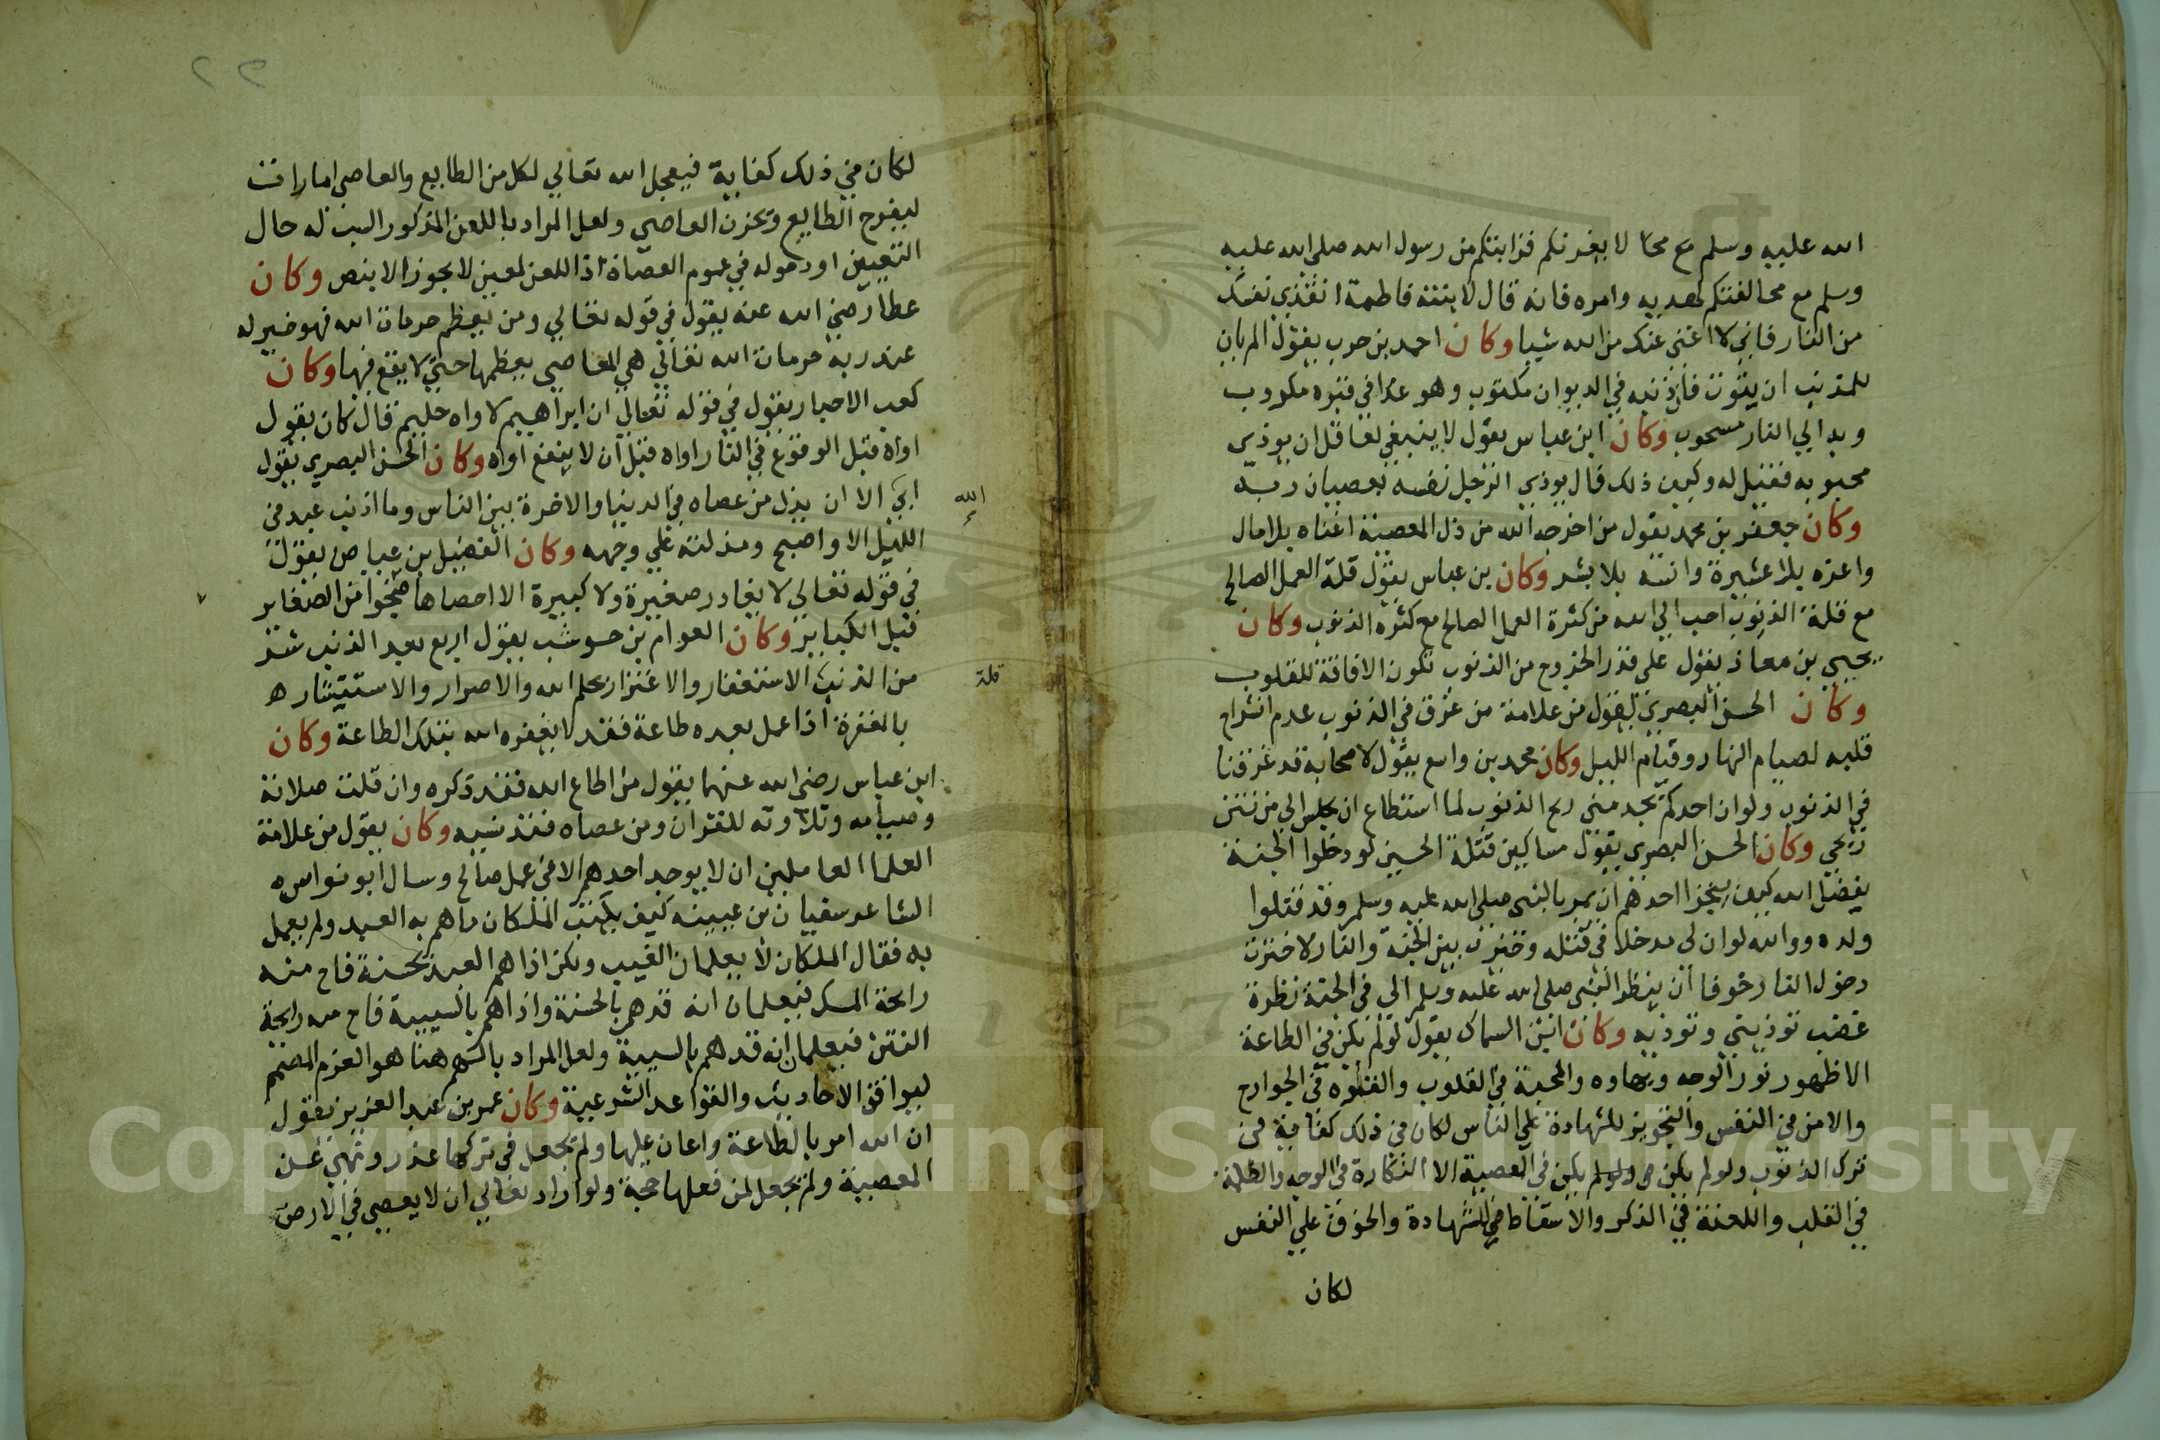 الله عليه وسلم مع محا لا يغرنكم قرابتكم من رسول الله صلى الله عليه
وسلم مع مخالفتكم لهديه وامره فانه قال لابنته فاطمة انقذي نفسك
من النار فاني لا اغني عنك من الله شيا وكان احمد بن حرب يقول الم يان
للمذنب ان يتوب فان ذنبه في الديوان مكتوب وهو غدا في قبره مكروب
وبه الي النار مسحوب وكان ابن عباس يقول لا ينبغي لعاقل ان يوذي
محبوبه فقيل له وكيف ذلك قال يوذي الرجل نفسه بعصيان ربه
وكان جعفر بن محمد يقول من اخرجه الله من ذل المعصية اغناه بلا مال
واعزه بلا عشيرة وانسه بلا بشر وكان بن عباس يقول قلة العمل الصالح
مع قلة الذنوب احب الي الله من كثرة العمل الصالح مع كثرة الذنوب وكان
يحيي بن معاذ يقول علي قدر الخروج من الذنوب تكون الافاقة للقلوب
وكان الحسن البصري يقول من علامة من غرق في الذنوب عدم انشراح
قلبه لصيام النهار وقيام الليل وكان محمد بن واسع يقول لاصحابه قد غرقنا
في الذنوب ولو ان احدكم يجد مني ريح الذنوب لما استطاع ان يجلس الي من نتن
ريحي وكان الحسن البصري يقول مساكين قتلة الحسين لو دخلوا الجنة
بفضل الله كيف يتجرا احدهم ان يمر بالنبي صلى الله عليه وسلم وقد قتلوا
ولده ووالله لو ان لي مدخلا في قتله وخيرت بين الجنة والنار لاخترت
دخول النار خوفا أن ينظر النبي صلى الله عليه وسلم الي في الجنة نظرة
غضب توذيني وتوذيه وكان ابن السماك يقول لو لم يكن في الطاعة
الا ظهور نور الوجه وبهاوه والمحبة في القلوب والقوه في الجوارح
والامن في النفس والتجويز للشهادة علي الناس لكان في ذلك كفاية في
ترك الذنوب ولو لم يكن في ولو لم يكن في العصية الا النكارة في الوجه والظلمة
في القلب واللعنة في الذكر والاسقاط في الشهادة والخوف علي النفس
لكان
لكان في ذلك كفاية فيعجل الله تعالي لكل من الطايع والعاصي امارات
ليفرح الطايع ويحزن العاصي ولعل المراد باللعن المذكور السب له حال
التعيين او دخوله في عموم العصاة اذ اللعن لمعين لا يجوز الا بنص وكان
عطا رضي الله عنه يقول في قوله تعالي ومن يعظم حرمات الله فهو خير له
عند ربه حرمات الله تعالي هي المعاصي يعظمها حتي لا يقع فيها وكان
كعب الاحبار يقول في قوله تعالي ان ابراهيم لاواه حليم قال كان يقول
اواه قبل الوقوع في النار اواه قبل ان لا ينفع اواه وكان الحسن البصري يقول
ابي الا ان يذل من عصاه في الدنيا والاخرة بين الناس وما اذنب عبد في
الله
الليل الا واصبح ومذلته علي وجهه وكان الفضيل بن عياض يقول
في قوله تعالي لا يغادر صغيرة ولا كبيرة الا احصاها ضجوا من الصغاير
قبل الكباير وكان العوام بن حوشب يقول اربع بعد الذنب شر
من الذنب الاستغفار والاغترار بحلم الله والاصرار والاستبشار ه
قلة
بالمغفرة اذا عمل بعده طاعة فقد لا يغفره الله بتلك الطاعة وكان
ابن عباس رضي الله عنهما يقول من اطاع الله فقد ذكره وان قلت صلاته
وصيامه وتلاوته للقران ومن عصاه فقد نسيه وكان يقول من علامة
العلما العاملين ان لا يوجد احدهم الا في عمل صالح وسال ابو نواس ه
الشاعر سفيان بن عيينه كيف يكتب الملكان ما هم به العبد ولم يعمل
به فقال الملكان لا يعلمان الغيب ولكن اذا هم العبد بحسنة فاح منه
رايحة المسك فيعلمان انه قد هم بالحسنة واذا هم بالسيية فاح منه رايحة
النتن فيعلمان انه قد هم بالسيية ولعل المراد بالهم هنا هو العزم المصمم
ليوافق الاحاديث والقواعد الشرعية وكان عمر بن عبد العزيز يقول
ان الله امر بالطاعة واعان عليها ولم يجعل في تركها عذر ونهي عن
المعصية ولم يجعل لمن فعلها حجة ولو اراد تعالي ان لا يعصي في الارض
Copyright © King Saud University
1957